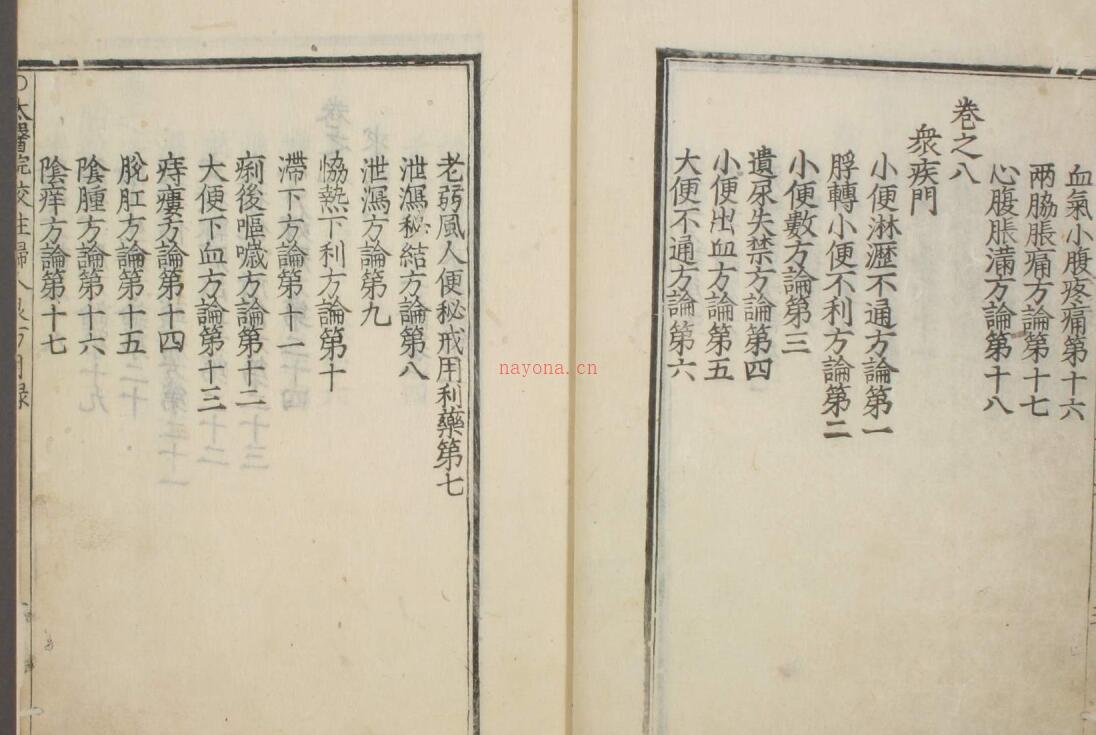 血氣小腹疼痛第十六
兩脇脹痛方論第十七
心腹脹滿方論第十八
卷之八
衆疾門
小便淋瀝不通方論第一
脬轉小便不利方論第二
小便數方論第三
遺尿失禁方論第四
小便出血方論第五
大便不通方論第六
老弱風人便秘戒用利藥第七
泄瀉秘結方論第八
泄瀉方論第九
恊熱下利方論第十
滯下方論第十一
痢後嘔噦方論第十二
大便下血方論第十三
痔瘻方論第十四
脫肛方論第十五
陰腫方論第十六
陰痒方論第十七
太醫院校註婦人良方目録
nayona.cn